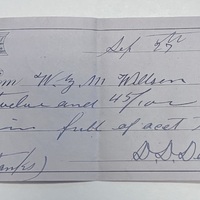 Sep 27th
W. G. M Willson
Twelve and 45/100
in full of acct
D. D. De